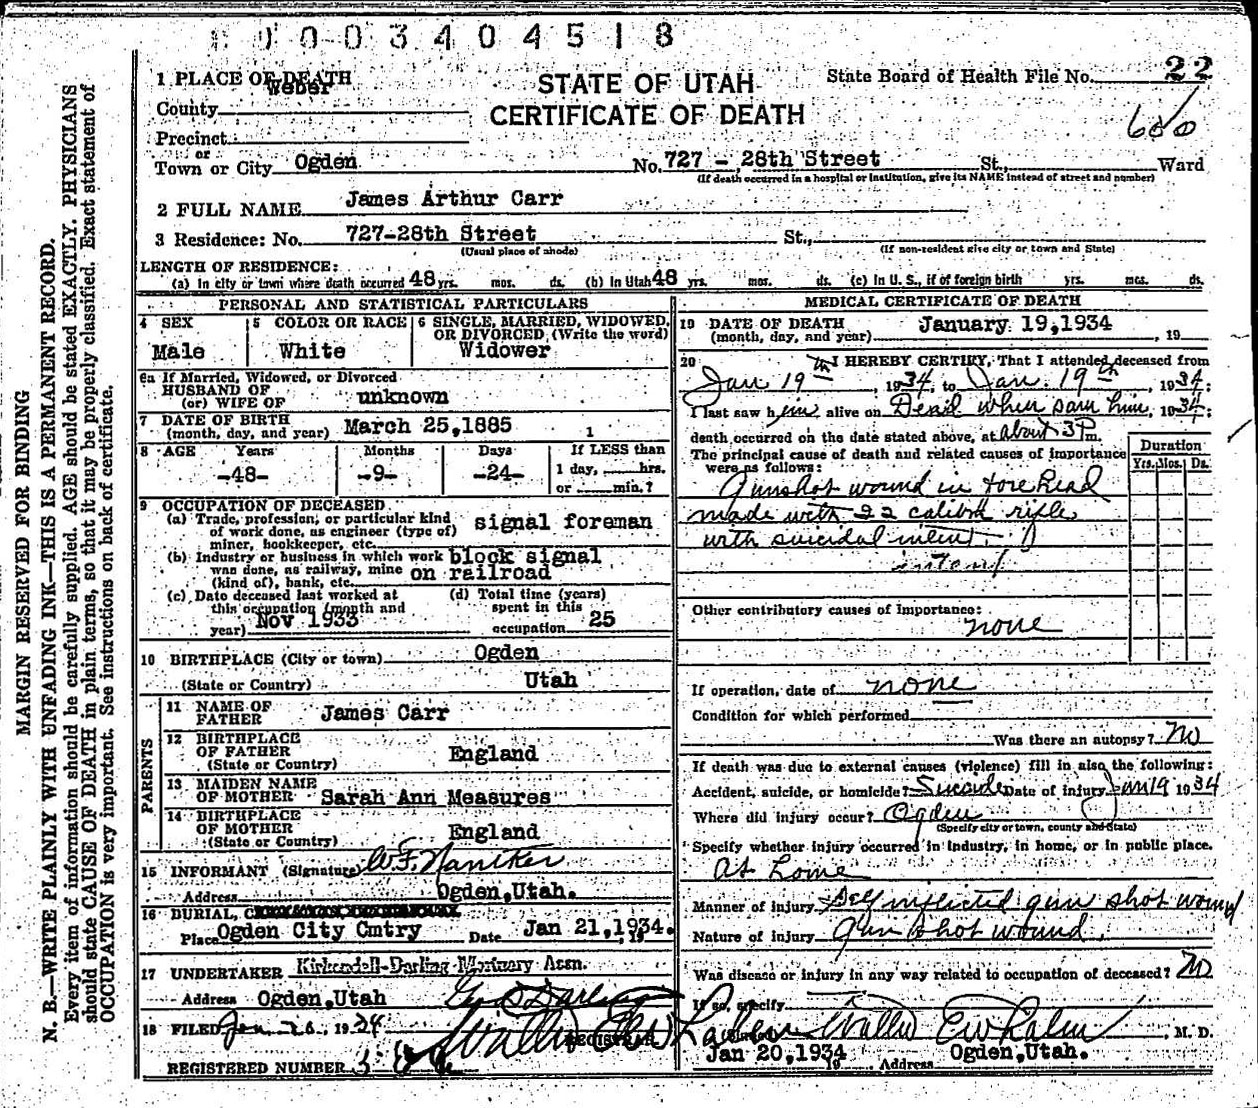 0003404518
1 PLACE OF DEATH
Weber
County
Precinct
or
Town or City Ogden No. 727 - 28th Street St., Ward
(If death occurred in a hospital or institution, give its NAME instead of street and number)
STATE OF UTAH
CERTIFICATE OF DEATH
State Board of Health File No. 22
600
2 FULL NAME James Arthur Carr
3 Residence: No. 727-28th Street St.,
(Usual place of abode) (If non-resident give city or town and State)
LENGTH OF RESIDENCE:
(a) In city or town where death occurred 48 yrs. mos. ds. (b) In Utah 48 yrs. mos. ds. (c) In U. S., if of foreign birth yrs. mos. ds.
PERSONAL AND STATISTICAL PARTICULARS
4 SEX
Male
5 COLOR OR RACE
White
6 SINGLE, MARRIED, WIDOWED, OR DIVORCED (Write the word)
Widower
6a If Married, Widowed, or Divorced
HUSBAND OF
(or) WIFE OF unknown
7 DATE OF BIRTH
(month, day, and year) March 25,1885 1
8 AGE Years Months Days If LESS than
-48- -9- -24- 1 day, hrs.
or min.?
9 OCCUPATION OF DECEASED
(a) Trade, profession, or particular kind
of work done, as engineer (type of)
miner, bookkeeper, etc. signal foreman
(b) Industry or business in which work
was done, as railway, mine
(kind of), bank, etc. block signal
on railroad
(c) Date deceased last worked at
this occupation (month and
year) Nov 1933
(d) Total time (years)
spent in this
occupation 25
10 BIRTHPLACE (City or town) Ogden
(State or Country) Utah
PARENTS
11 NAME OF
FATHER James Carr
12 BIRTHPLACE
OF FATHER England
(State or Country)
13 MAIDEN NAME
OF MOTHER Sarah Ann Measures
14 BIRTHPLACE
OF MOTHER England
(State or Country)
15 INFORMANT (Signature) W.F.
Address Ogden,Utah.
16 BURIAL,
Place Ogden City Cmtry Date Jan 21,1934. 19
17 UNDERTAKER Kirkendell-Darling Mortuary Assn.
Address Ogden,Utah
18 FILED Jan 1934
REGISTRAR
REGISTERED NUMBER
MEDICAL CERTIFICATE OF DEATH
19 DATE OF DEATH
(month, day, and year) January 19,1934 , 19
20 I HEREBY CERTIFY, That I attended deceased from
Jan 19th, 1934, to Jan. 19th, 1934;
I last saw him alive on Dead when saw him, 1934;
death occurred on the date stated above, at about 3 P m.
The principal cause of death and related causes of importance
were as follows:
Duration
Yrs. Mos. Ds.
Gunshot wound in forehead
made with 22 calibre rifle
with suicidal intent.
intent
Other contributory causes of importance:
none
If operation, date of none
Condition for which performed
Was there an autopsy? No
If death was due to external causes (violence) fill in also the following:
Accident, suicide, or homicide? Suicide Date of injury Jan 19 1934
Where did injury occur? Ogden
(Specify city or town, county and State)
Specify whether injury occurred in industry, in home, or in public place.
At Home
Manner of injury Self inflicted gun shot wound
Nature of injury Gun shot wound.
Was disease or injury in any way related to occupation of deceased? No
If so, specify
(Signed) M. D.
Jan 20,1934 19 Address Ogden,Utah.
MARGIN RESERVED FOR BINDING
N. B.—WRITE PLAINLY WITH UNFADING INK—THIS IS A PERMANENT RECORD.
Every item of information should be carefully supplied. AGE should be stated EXACTLY. PHYSICIANS
should state CAUSE OF DEATH in plain terms, so that it may be properly classified. Exact statement of
OCCUPATION is very important. See instructions on back of certificate.